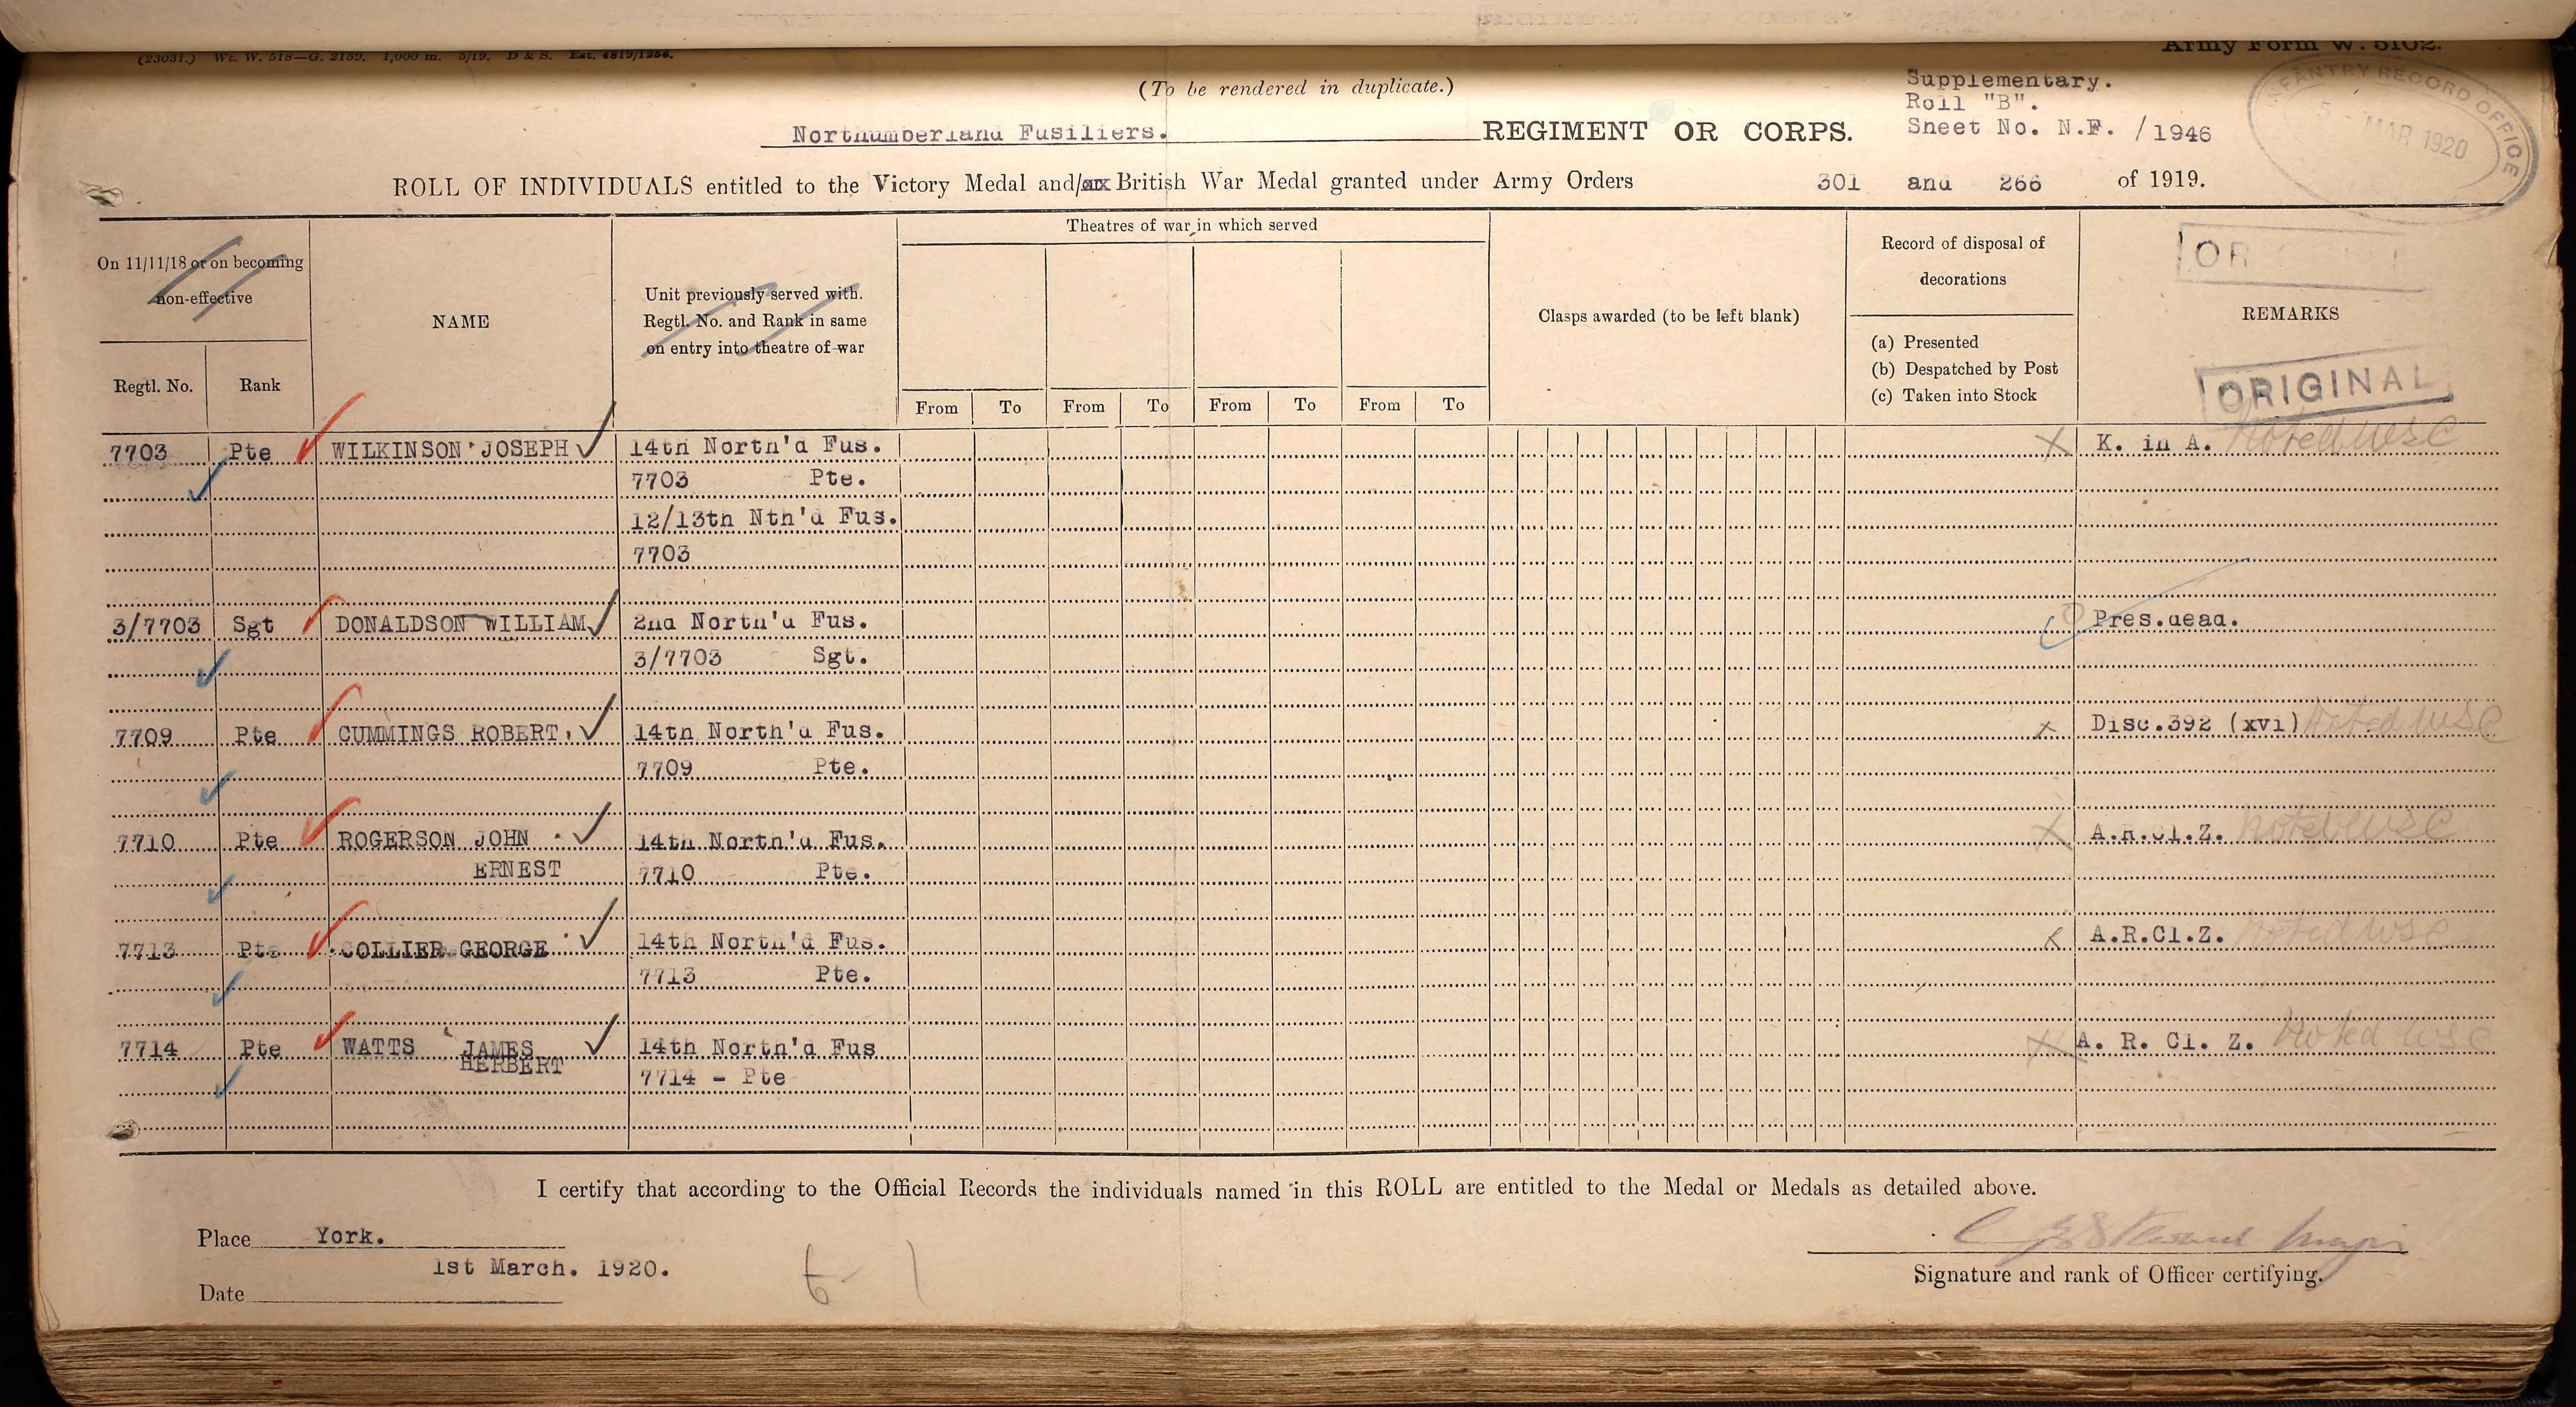 (23031.) Wt. W. 518—G. 2159. 1,000 m. 5/19. D & S. Est. 4819/1266.
Army Form W. 5102.
(To be rendered in duplicate.)
Supplementary.
Roll "B".
Northumberland Fusiliers. REGIMENT OR CORPS.
Sheet No. N.F. /1946
INFANTRY RECORD OFFICE
5 - MAR 1920
ROLL OF INDIVIDUALS entitled to the Victory Medal and/or British War Medal granted under Army Orders 301 and 266 of 1919.
On 11/11/18 or on becoming non-effective
Regtl. No.
Rank
NAME
Unit previously served with.
Regtl. No. and Rank in same
on entry into theatre of war
Theatres of war in which served
From To From To From To From To
Clasps awarded (to be left blank)
Record of disposal of
decorations
(a) Presented
(b) Despatched by Post
(c) Taken into Stock
REMARKS
ORIGINAL
7703 Pte WILKINSON JOSEPH 14th North'd Fus. K. in A. Noted WSC
7703 Pte.
12/13th Nth'd Fus.
7703
3/7703 Sgt DONALDSON WILLIAM 2nd North'd Fus. Pres.dead.
3/7703 Sgt.
7709 Pte CUMMINGS ROBERT. 14th North'd Fus. Disc.392 (xvi) Noted WSC
7709 Pte.
7710 Pte ROGERSON JOHN 14th North'd Fus. A.R.Cl.Z. Noted WSC
ERNEST 7710 Pte.
7713 Pte COLLIER GEORGE 14th North'd Fus. A.R.Cl.Z. Noted WSC
7713 Pte.
7714 Pte WATTS JAMES 14th North'd Fus A. R. Cl. Z. Noted WSC
HERBERT 7714 - Pte
I certify that according to the Official Records the individuals named in this ROLL are entitled to the Medal or Medals as detailed above.
Place York.
1st March. 1920.
Date
Major
Signature and rank of Officer certifying.